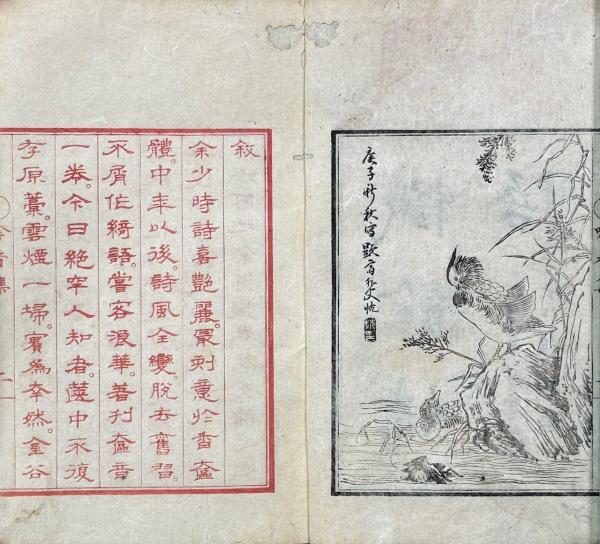 庚子新秋寫
敘
余少時詩喜艷麗。最刻意於香奩
體。中年以後。詩風全變。脫去舊習。
不屑作綺語。嘗客浪華。著刊奩音
一卷。今日絕罕人知者。篋中不復
存原藁。雲煙一掃。為然。金谷
音集